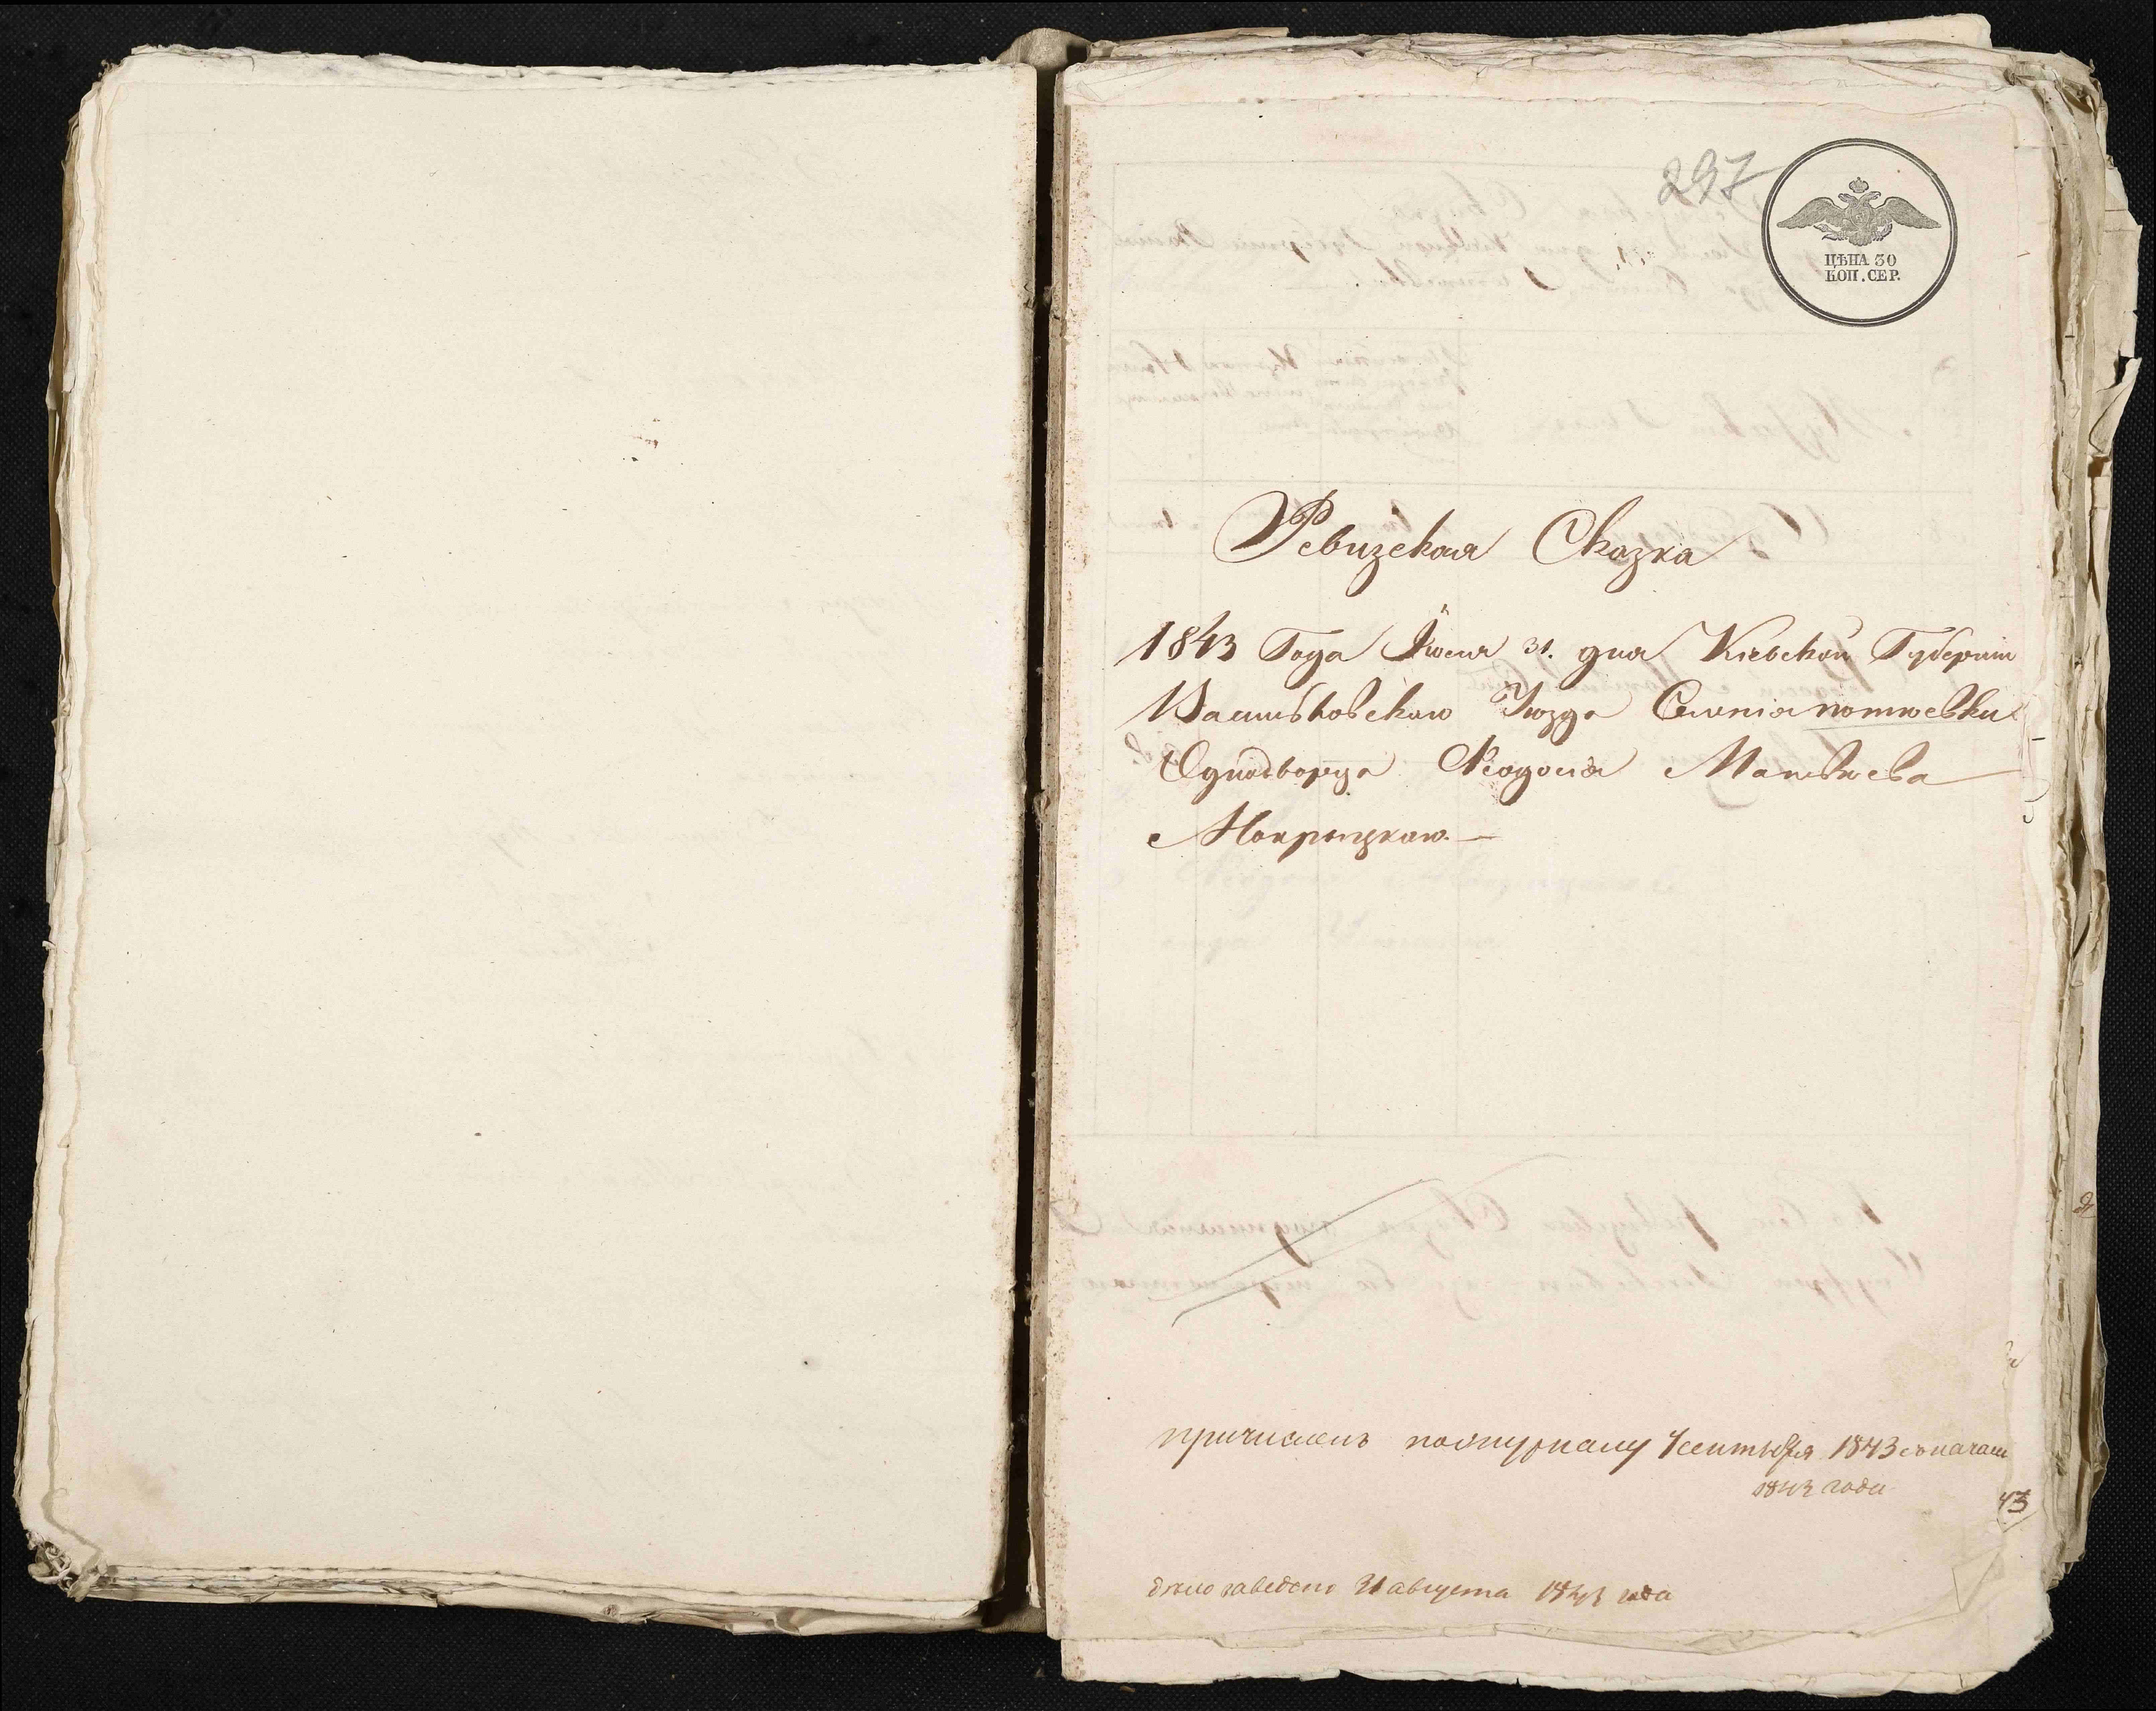 297
ЦѢНА 30
КОП. СЕР.
Ревизская Сказка
1843 Года Июля 31. дня Кіевской Губерніи
Васильковскаго Уѣзда Потіевки
Однодворца Ѳеодосія Матвѣева
Мокрыцкаго. —
причисленъ по журналу сентября 1843 съ начала
1843 года
43
дѣло заведено 31 августа 1843 года